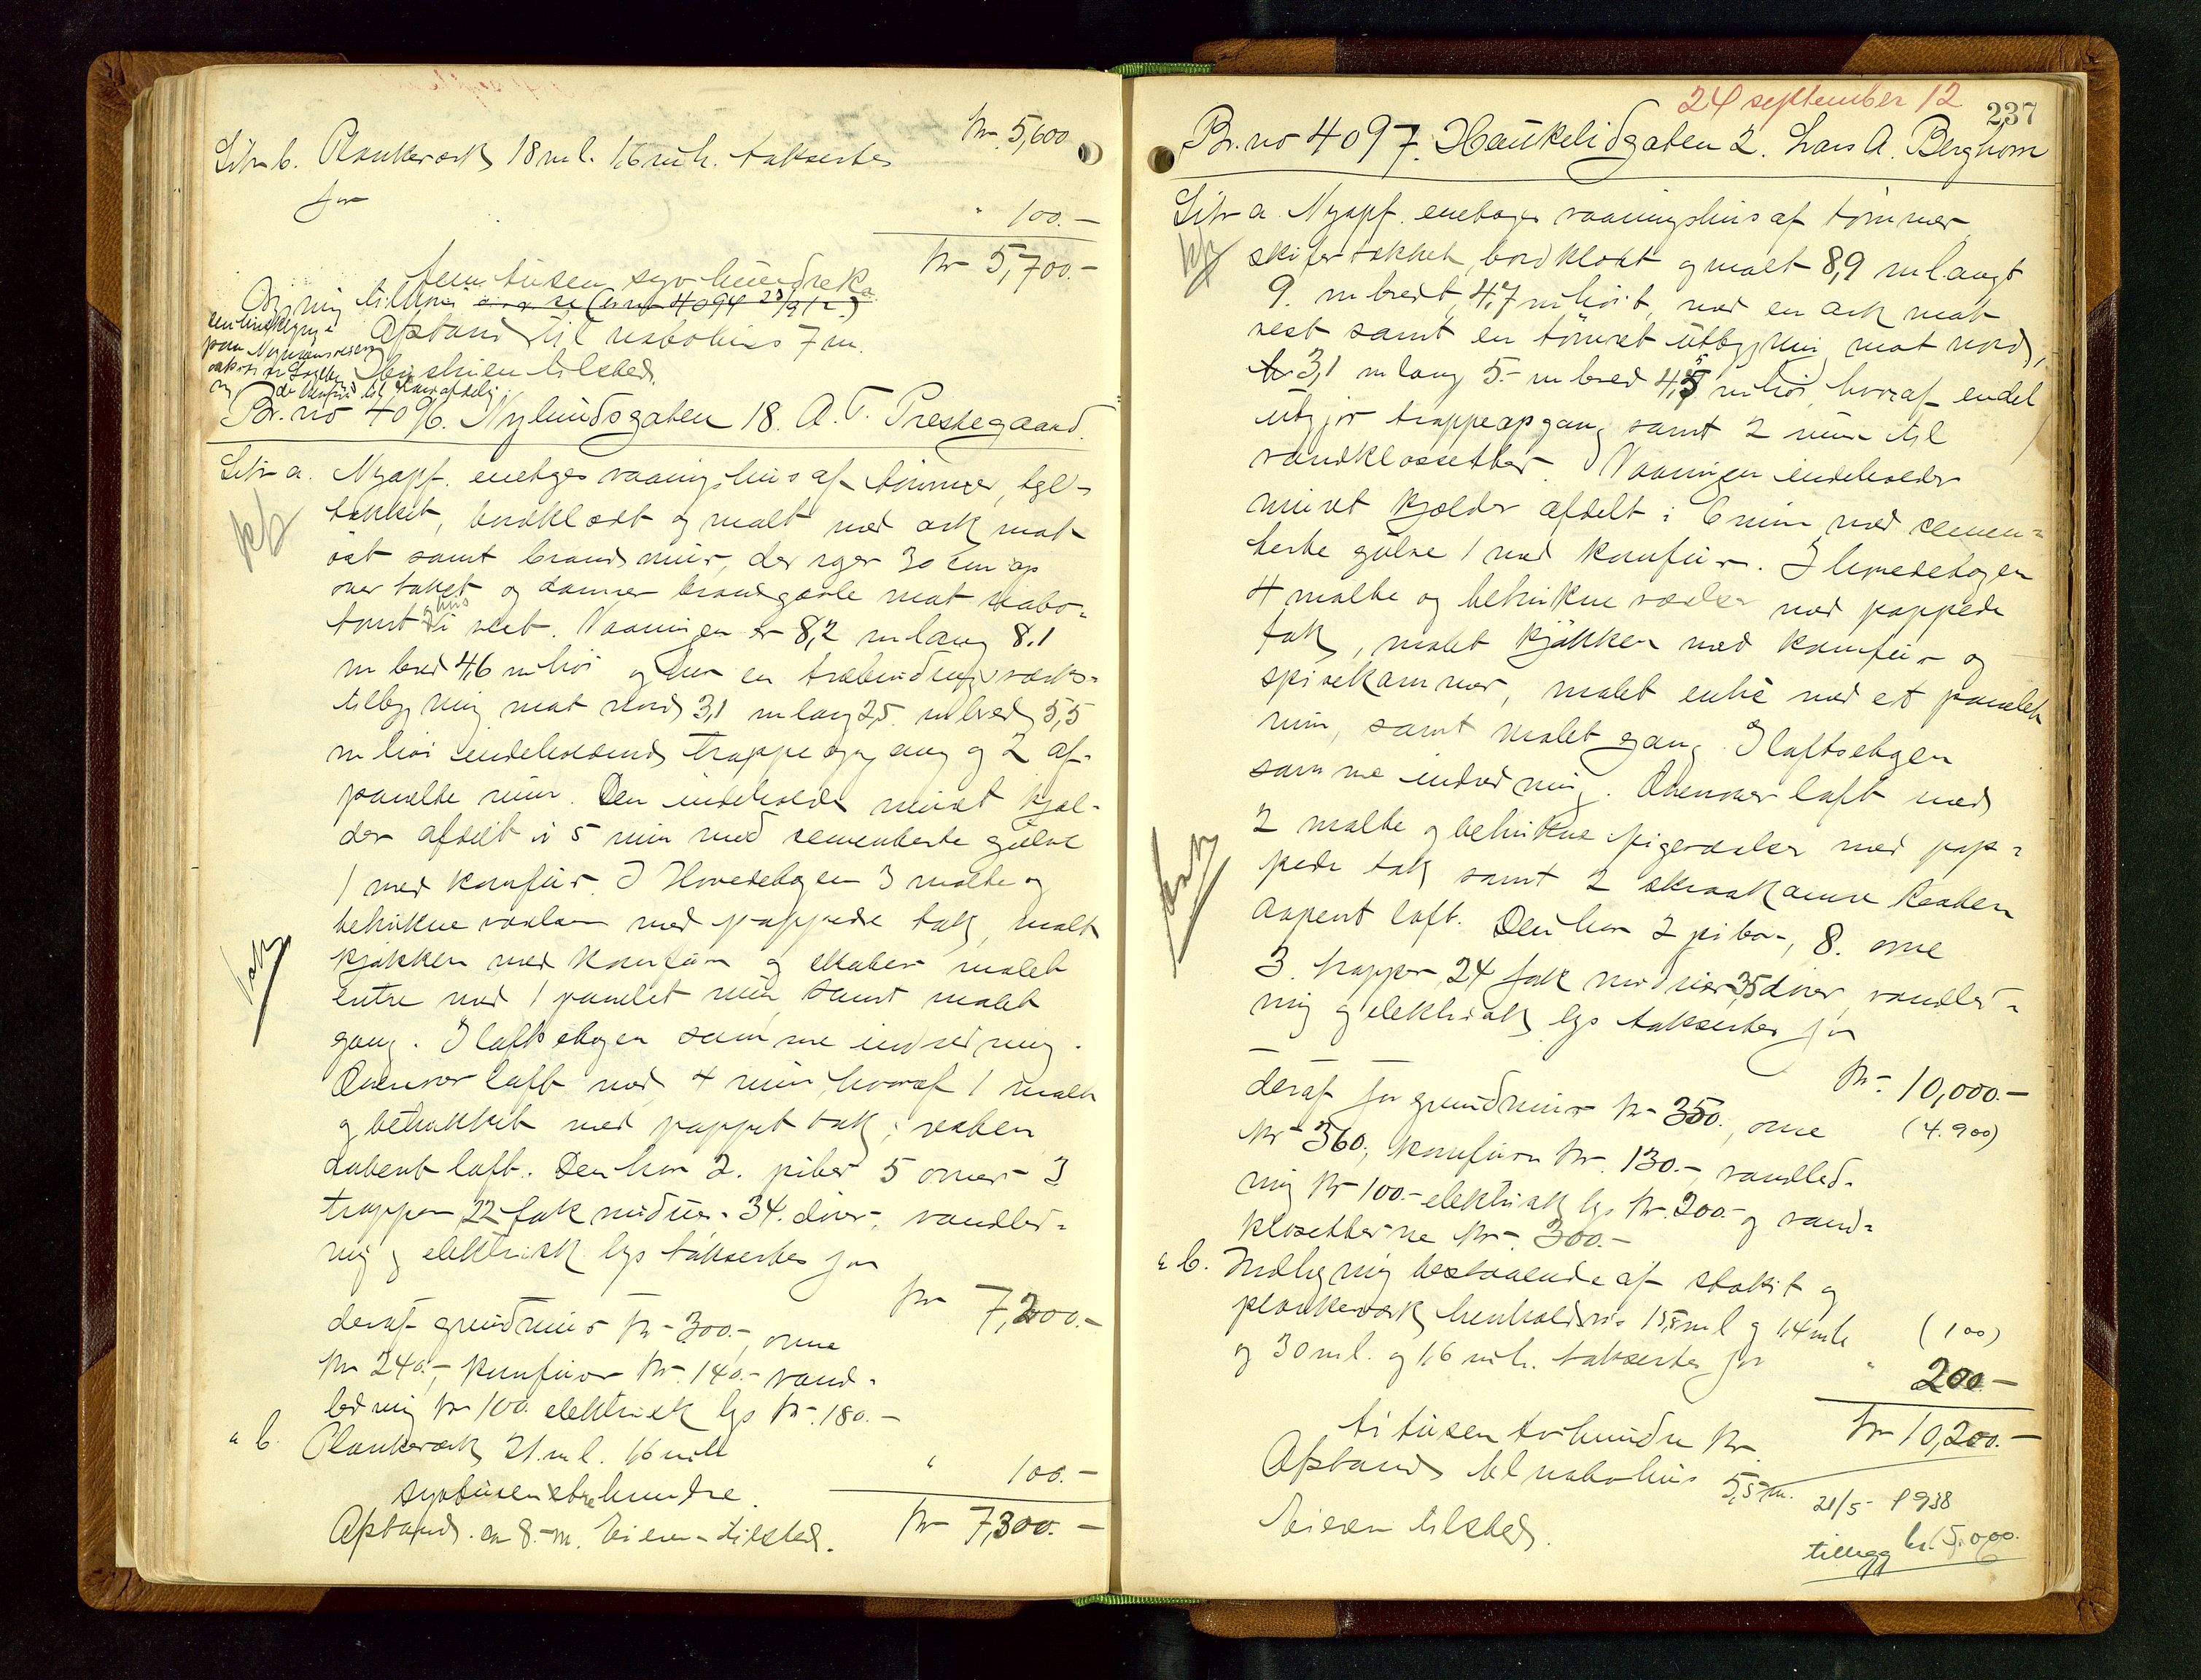 Kr. 5,600
Litr b. Plankeverk 18 m l. 1,6 m h. takseres
for
" 100.-
Kr 5,700.-
fem tusen syv hundrede kr
Avstand til nabohus 7 m.
tilstede.
Br. no 4096. Nylundsgaten 18. A. T. Prestegaard.
Litr a. Nyopf. enetages vaaningshus af tømmer, tegl-
tækket, bordklædt og malt med ark mot
øst samt brandmur, der rager 30 cm op
over taket og danner brandgavle mot nabo-
tomt og hus i vest. Vaaningen er 8,2 m lang 8.1
m bred 4,6 m høi og har en træbindingsverks-
tilbygning mot nord 3,1 m lang 2,5 m bred 5,5
m høi indeholdende trappeopgang og 2 af-
panelte rum. Den indeholder muret kjæl-
der afdelt i 5 rum med cementerte gulve
1 med komfur. I Hovedetagen 3 malte og
betrukne værelser med pappede tak, malt
kjøkken med komfur og skaber malet
entre med 1 panelet rum, samt malet
gang. I loftsetagen samme indredning.
Ovenover loft med 4 rum, hvoraf 1 malt
og betrukket med pappet tak; resten
aabent loft. Den har 2. piber 5 ovner 3
trapper 22 fak vinduer 34. dører, vandled-
ning og elektrisk lys takseres for
Kr 7,200.-
deraf grundmur Kr 300.-, ovne
Kr 240.-, komfurer Kr. 140.- vand-
ledning Kr 100. elektrisk lys Kr. 180.-
" b. Plankeverk 21. m l. 1,6 m h
" 100.-
syvtusentrehundre.
Kr 7,300.-
Avstand ca 8 m. Eieren tilsted.
24 september 12
237
Br. no 4097. Haukelidgaten 2. Lars A. Berghom
Litr a. Nyopf. enetages vaaningshus af tømmer
skifertækket, bordklædt og malt 8,9 m langt
9. m bredt, 4,7 m høit, med en ark mot
vest samt en tømret utbygning mot nord,
3,1 m lang 5.- m bred 4,5 m høi, hvoraf endel
utgjør trappeopgang samt 2 rum til
vandklossetter. Vaaningen indeholder
muret kjelder afdelt i 6 rum med cemen-
terte gulve 1 med komfur. I hovedetagen
4 malte og betrukne værelser med pappede
tak, malet kjøkken med komfur og
spisekammer, malet entré med et panelet
rum, samt malet gang. I loftsetagen
samme indredning. Ovenover loft med
2 malte og betrukne pigeværelser med pap-
pede tak samt 2 skraakamre resten
aapent loft. Den har 2 piber, 8. ovne
3. trapper, 24 fak vinduer 35 dører, vandled-
ning og elektrisk lys takseres for
Kr. 10,000.-
deraf for grundmur Kr 350., ovne
(4.900)
Kr 360., komfurer Kr. 130.-, vandled-
ning Kr 100.- elektrisk lys Kr. 200.- og vand-
klosetterne Kr. 300.-
" b. Indhegning bestaaende af stakit og
plankeverk henholdsvis 15,5 m l og 1,4 m h
(100)
og 30 m l. og 1,6 m h. takseres for
" 200.-
ti tusen tohundre Kr
Kr 10,200.-
Avstand til nabohus 5,5 m.
21/5- 1938
Eieren tilsted.
tillegg kr. 15.000.